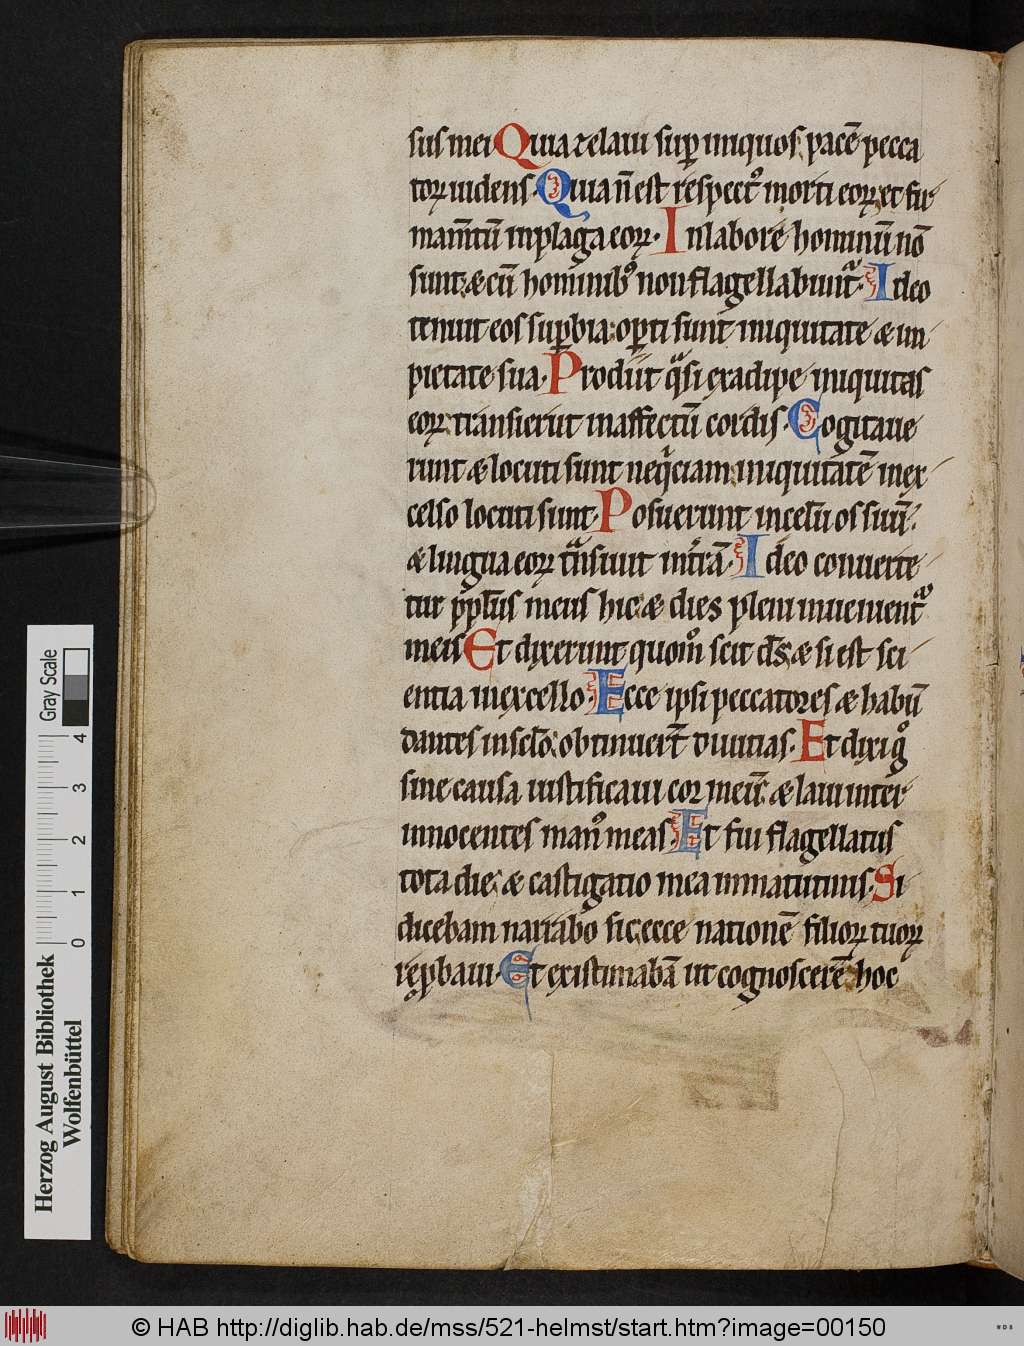 sus mei Quia zelaui suꝑ iniquos pacē pecca
toꝝ uidens. Quia n̄ est respectꝰ morti eoꝝ et fir
mam̄tū inplaga eoꝝ. Inlabore hominū nō
sunt: & cū hominibꝰ non flagellabunt᷑. Ideo
tenuit eos suꝑbia: oꝑti sunt iniquitate & im
pietate sua. Prodiit qͣsi exadipe iniquitas
eoꝝ: transierūt inaffectū cordis. Cogitaue
runt & locuti sunt neqͥciam: iniquitatē inex
celso locuti sunt. Posuerunt incelū os suū:
& lingua eoꝝ tͣnsiuit int̄rā. Ideo conuerte
tur ppl̄us meus hic: & dies pleni inuenient᷑
meis Et dixerunt quom̊ scit ds̄, & si est sci
entia inexcelso. Ecce ipsi peccatores & habū
dantes insclo: obtinuerт̄ diuitias. Et dixi gͦ
sine causa iustificaui cor meū: & laui inter
innocentes manꝰ meas. Et fui flagellatus
tota die: & castigatio mea inmatutinis. Si
dicebam narrabo sic: ecce nationē filioꝝ tuoꝝ
reꝓbaui. Et existimabā ut cognoscerē hoc
Herzog August Bibliothek
Wolfenbüttel
0 1 2 3 4
Gray Scale
© HAB http://diglib.hab.de/mss/521-helmst/start.htm?image=00150